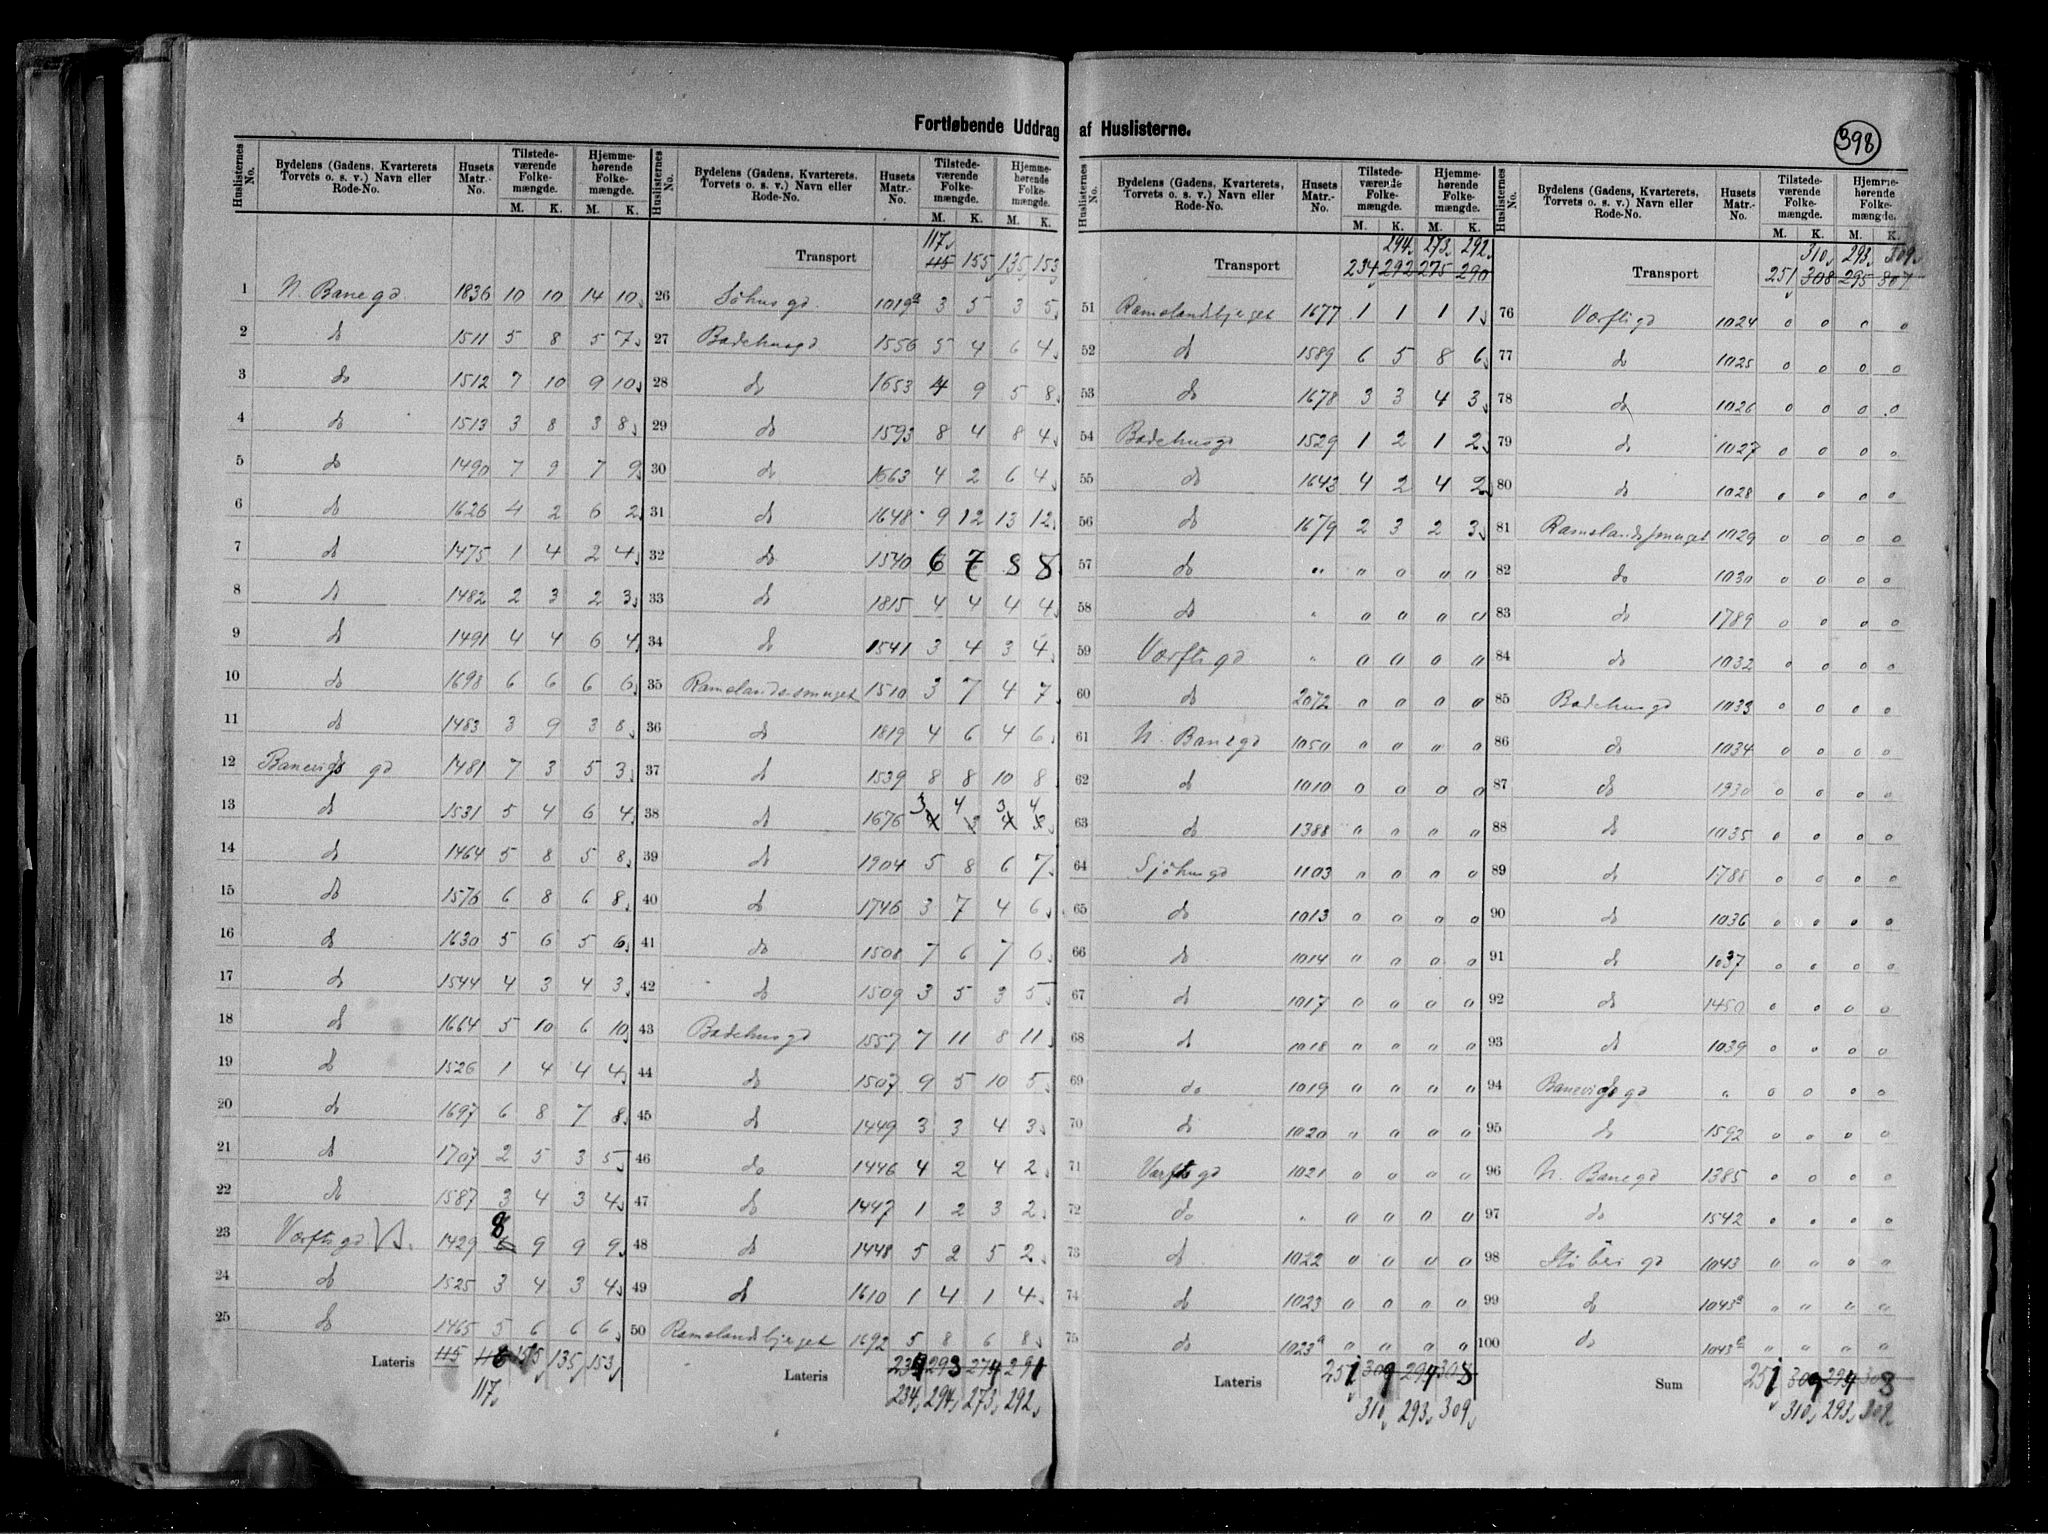 Fortløbende Uddrag af Huslisterne.
398
Huslisternes No. Bydelens (Gadens, Kvarterets Torvets o. s. v.) Navn eller Rode-No. Husets Matr.-No. Tilstede-værende Folke-mængde. M. K. Hjemme-hørende Folke-mængde. M. K.
1 N. Banegd 1836 10 10 14 10
2 do 1511 5 8 5 7
3 do 1512 7 10 9 10
4 do 1513 3 8 3 8
5 do 1490 7 9 7 9
6 do 1626 4 2 6 2
7 do 1475 1 4 2 4
8 do 1482 2 3 2 3
9 do 1491 4 4 6 4
10 do 1698 6 6 6 6
11 do 1483 3 9 3 8
12 Banevigs gd 1481 7 3 5 3
13 do 1531 5 4 6 4
14 do 1464 5 8 5 8
15 do 1576 6 8 6 8
16 do 1630 5 6 5 6
17 do 1544 4 3 4 3
18 do 1664 5 10 6 10
19 do 1526 1 4 4 4
20 do 1697 6 8 7 8
21 do 1707 2 5 3 5
22 do 1587 3 4 3 4
23 Værftsgd 1429 8 9 9 9
24 do 1525 3 4 3 4
25 do 1465 5 6 6 6
Lateris 115 155 135 153
117
Huslisternes No. Bydelens (Gadens, Kvarterets, Torvets o. s. v.) Navn eller Rode-No. Husets Matr.-No. Tilstede-værende Folke-mængde. M. K. Hjemme-hørende Folke-mængde. M. K.
117
Transport 115 155 135 153
26 Söhusgd. 1019a 3 5 3 5
27 Badehusgd 1556 5 4 6 4
28 do 1653 4 9 5 8
29 do 1593 8 4 8 4
30 do 1663 4 2 6 4
31 do 1648 9 12 13 12
32 do 1540 6 7 8 8
33 do 1815 4 4 4 4
34 do 1541 3 4 3 4
35 Ramslandssmuget 1510 3 7 4 7
36 do 1819 4 6 4 6
37 do 1539 8 8 10 8
3 4 3 4
38 do 1676 4 3 4 3
39 do 1904 5 8 6 7
40 do 1746 3 7 4 6
41 do 1508 7 6 7 6
42 do 1509 3 5 3 5
43 Badehusgd 1557 7 11 8 11
44 do 1507 9 5 10 5
45 do 1449 3 3 4 3
46 do 1446 4 2 4 2
47 do 1447 1 2 3 2
48 do 1448 5 2 5 2
49 do 1610 1 4 1 4
50 Ramslandsbjerget 1692 5 8 6 8
Lateris 293 274 291
234 294 273 292
Huslisternes No. Bydelens (Gadens, Kvarterets, Torvets o. s. v.) Navn eller Rode-No. Husets Matr.-No. Tilstede-værende Folke-mængde. M. K. Hjemme-hørende Folke-mængde. M. K.
294 273 292
Transport 234 292 275 290
51 Ramslandsbjerget 1677 1 1 1 1
52 do 1589 6 5 8 6
53 do 1678 3 3 4 3
54 Badehusgd 1529 1 2 1 2
55 do 1643 4 2 4 2
56 do 1679 2 3 2 3
57 do " 0 0 0 0
58 do " 0 0 0 0
59 Værftsgd " 0 0 0 0
60 do 2072 0 0 0 0
61 N. Banegd 1050 0 0 0 0
62 do 1010 0 0 0 0
63 do 1388 0 0 0 0
64 Sjöhusgd 1103 0 0 0 0
65 do 1013 0 0 0 0
66 do 1014 0 0 0 0
67 do 1017 0 0 0 0
68 do 1018 0 0 0 0
69 do 1019 0 0 0 0
70 do 1020 0 0 0 0
71 Værftsgd 1021 0 0 0 0
72 do " 0 0 0 0
73 do 1022 0 0 0 0
74 do 1023 0 0 0 0
75 do 1023a 0 0 0 0
Lateris 251 309 294 308
310 293 309
Huslisternes No. Bydelens (Gadens, Kvarterets, Torvets o. s. v.) Navn eller Rode-No. Husets Matr.-No. Tilstede-værende Folke-mængde. M. K. Hjemme-hørende Folke-mængde. M. K.
310 293 309
Transport 251 308 295 307
76 Værftsgd 1024 0 0 0 0
77 do 1025 0 0 0 0
78 do 1026 0 0 0 0
79 do 1027 0 0 0 0
80 do 1028 0 0 0 0
81 Ramslandssmuget 1029 0 0 0 0
82 do 1030 0 0 0 0
83 do 1789 0 0 0 0
84 do 1032 0 0 0 0
85 Badehusgd 1033 0 0 0 0
86 do 1034 0 0 0 0
87 do 1930 0 0 0 0
88 do 1035 0 0 0 0
89 do 1788 0 0 0 0
90 do 1036 0 0 0 0
91 do 1037 0 0 0 0
92 do 1450 0 0 0 0
93 do 1039 0 0 0 0
94 Banevigsgd " 0 0 0 0
95 do 1592 0 0 0 0
96 N. Banegd 1385 0 0 0 0
97 do 1542 0 0 0 0
98 gd 1043 0 0 0 0
99 do 1043a 0 0 0 0
100 do 0 0 0 0
Sum 251 309 294 308
310 293 309